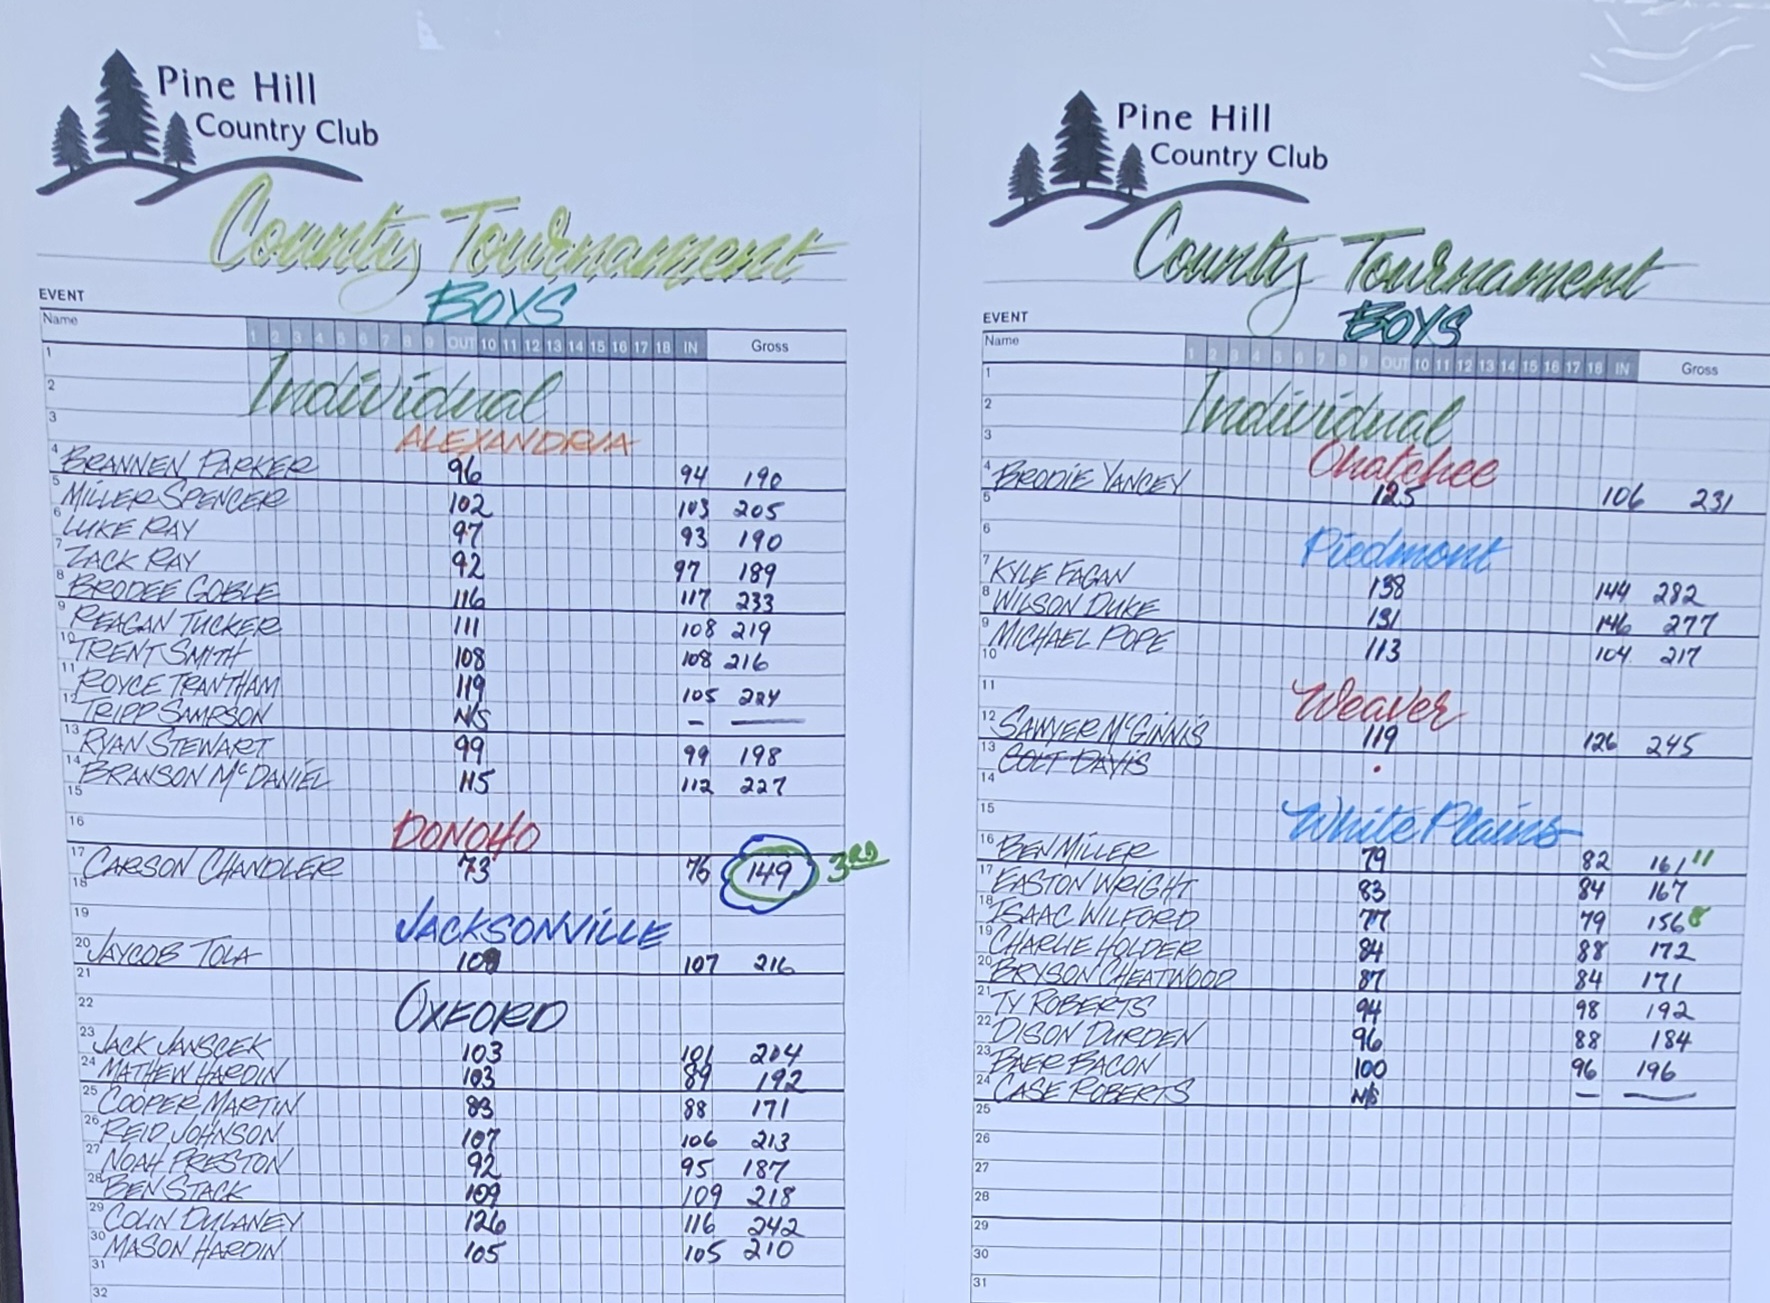 Pine Hill
Country Club
County Tournament
BOYS
EVENT
Name 1 2 3 4 5 6 7 8 9 OUT 10 11 12 13 14 15 16 17 18 IN Gross
1
Individual
2
3
ALEXANDRIA
4 BRANNEN PARKER 96 94 190
5 MILLER SPENCER 102 103 205
6 LUKE RAY 97 93 190
7 ZACK RAY 92 97 189
8 BRODEE GOBLE 116 117 233
9 REAGAN TUCKER 111 108 219
10 TRENT SMITH 108 108 216
11 ROYCE TRANTHAM 119 105 224
12 TRIPP SAMPSON N/S – —
13 RYAN STEWART 99 99 198
14 BRANSON McDANIEL 115 112 227
15
16
DONOHO
17 CARSON CHANDLER 73 76 149 3RD
18
19
JACKSONVILLE
20 JAYCOB TOLA 109 107 216
21
22
OXFORD
23 JACK JANSCEK 103 101 204
24 MATHEW HARDIN 103 89 192
25 COOPER MARTIN 83 88 171
26 REID JOHNSON 107 106 213
27 NOAH PRESTON 92 95 187
28 BEN STACK 109 109 218
29 COLIN DULANEY 126 116 242
30 MASON HARDIN 105 105 210
31
32
Pine Hill
Country Club
County Tournament
BOYS
EVENT
Name 1 2 3 4 5 6 7 8 9 OUT 10 11 12 13 14 15 16 17 18 IN Gross
1
Individual
2
3
Ohatchee
4 BRODIE YANCEY 125 106 231
5
6
Piedmont
7 KYLE FAGAN 138 144 282
8 WILSON DUKE 131 146 277
9 MICHAEL POPE 113 104 217
10
11
Weaver
12 SAWYER McGINNIS 119 126 245
13 COLT DAVIS
14
15
White Plains
16 BEN MILLER 79 82 161
17 EASTON WRIGHT 83 84 167
18 ISAAC WILFORD 77 79 156
19 CHARLIE HOLDER 84 88 172
20 BRYSON CHEATWOOD 87 84 171
21 TY ROBERTS 94 98 192
22 DISON DURDEN 96 88 184
23 BAER BACON 100 96 196
24 CASE ROBERTS N/S – —
25
26
27
28
29
30
31